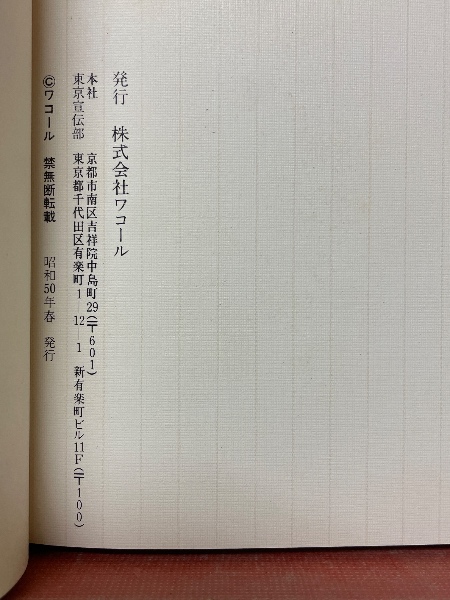 発行 株式会社ワコール
本社 京都市南区吉祥院中島町29(〒601)
東京宣伝部 東京都千代田区有楽町1-12-1 新有楽町ビル11F(〒100)
©ワコール 禁無断転載 昭和50年春 発行